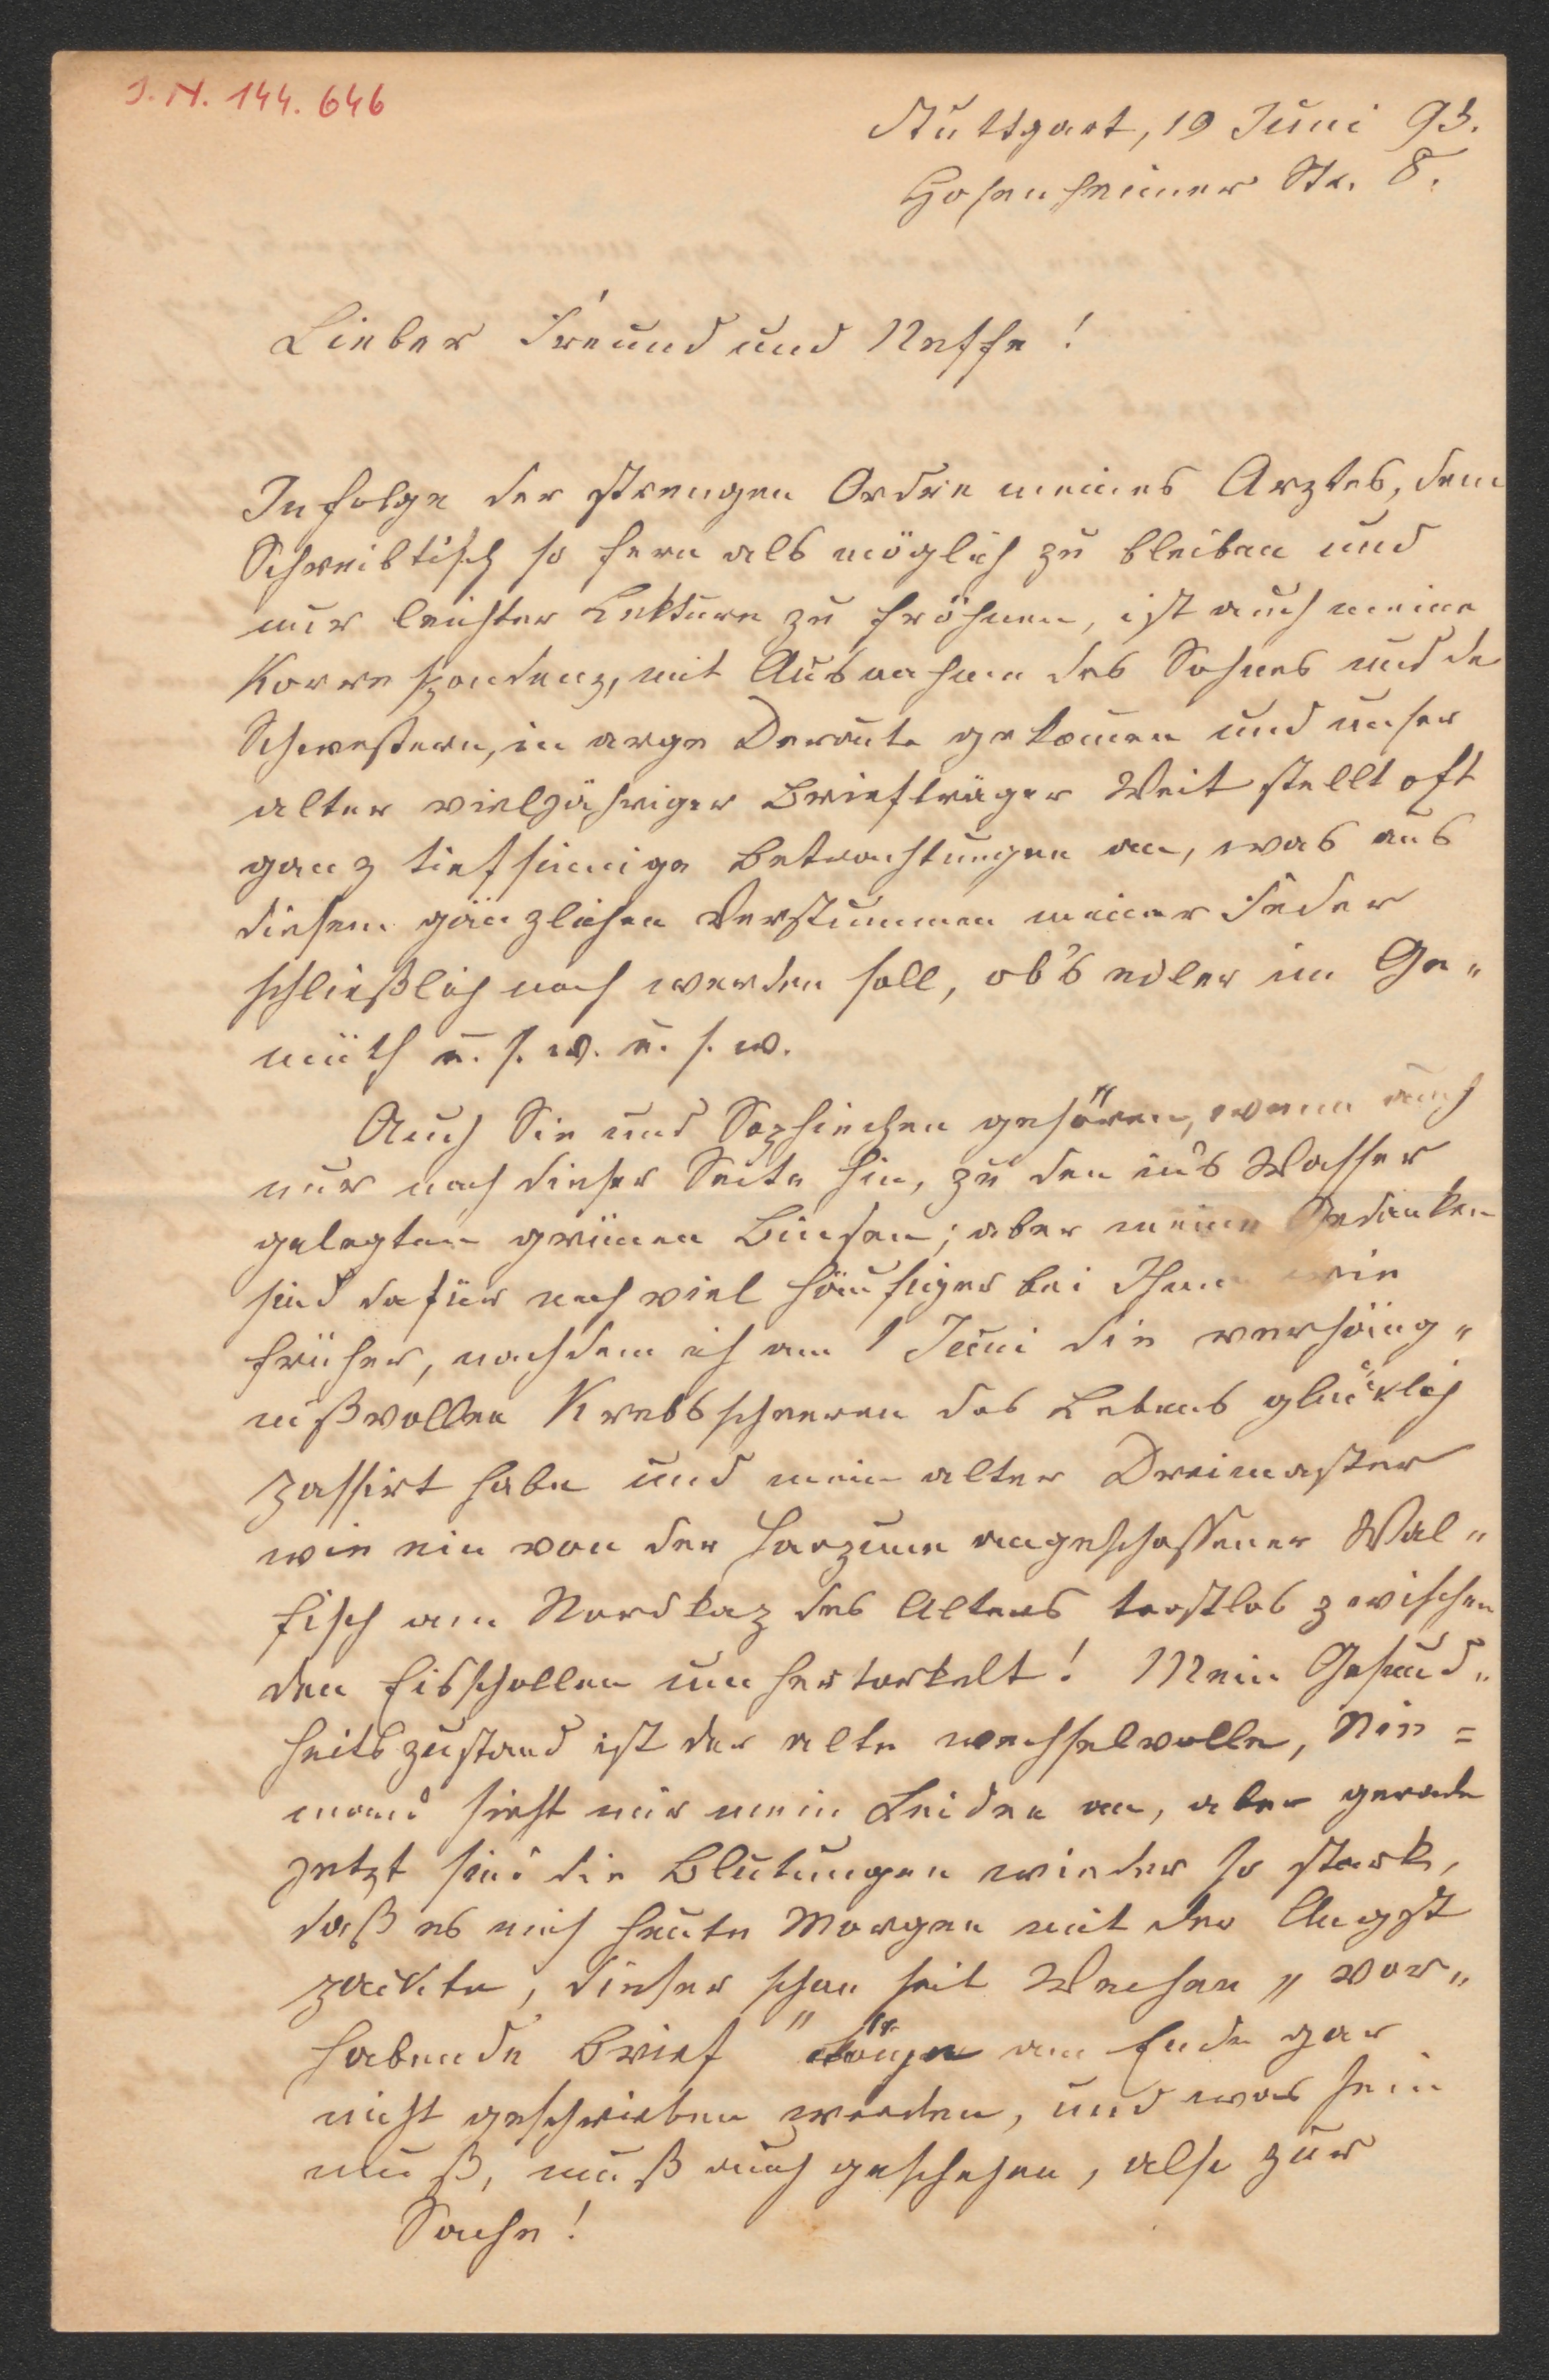 J. N. 144.646
Stuttgart, 19 Juni 93.
Hohenheimer Str. 8.
Lieber Freund und Neffe!
In folge der strengen Ordre meines Arztes, dem
Schreibtisch so fern als möglich zu bleiben und
nur leichter Lektüre zu fröhnen, ist auch meine
Korrespondenz, mit Ausnahme des Sohnes und de
Schwestern, in arge Deroute gekommen und unser
alter vieljähriger Briefträger Veit stellt oft
ganz tiefsinnige Betrachtungen an, was aus
diesem gänzlichen Verstummen meiner Feder
schließlich noch werden soll, ob's edler im Ge„
müth u. s. w. u. s. w.
Auch Sie und Sophiechen gehören, wenn auch
nur nach dieser Seite hin, zu den in's Wasser
gelegten grünen Binsen; aber meine Gedanken
sind dafür noch viel häufiger bei Ihnen wie
früher, nachdem ich am 1 Juni die verhäng„
nißvollen Krebsscheeren des Lebens glücklich
passirt habe und mein alter Dreimaster
wie ein von der Harpune angeschossener Wal„
fisch am Nordkap des Alters trostlos zwischen
den Eisschollen umhertorkelt! Mein Gesund„
heitszustand ist der alte wechselvolle, Nie=
mand sieht mir mein Leiden an, aber gerade
jetzt sind die Blutungen wieder so stark,
daß es mich heute Morgen mit der Angst
packte, dieser schon seit Wochen „vor„
habende Brief" könne am Ende gar
nicht geschrieben werden, und was sein
muß, muß auch geschehen, also zur
Sache!